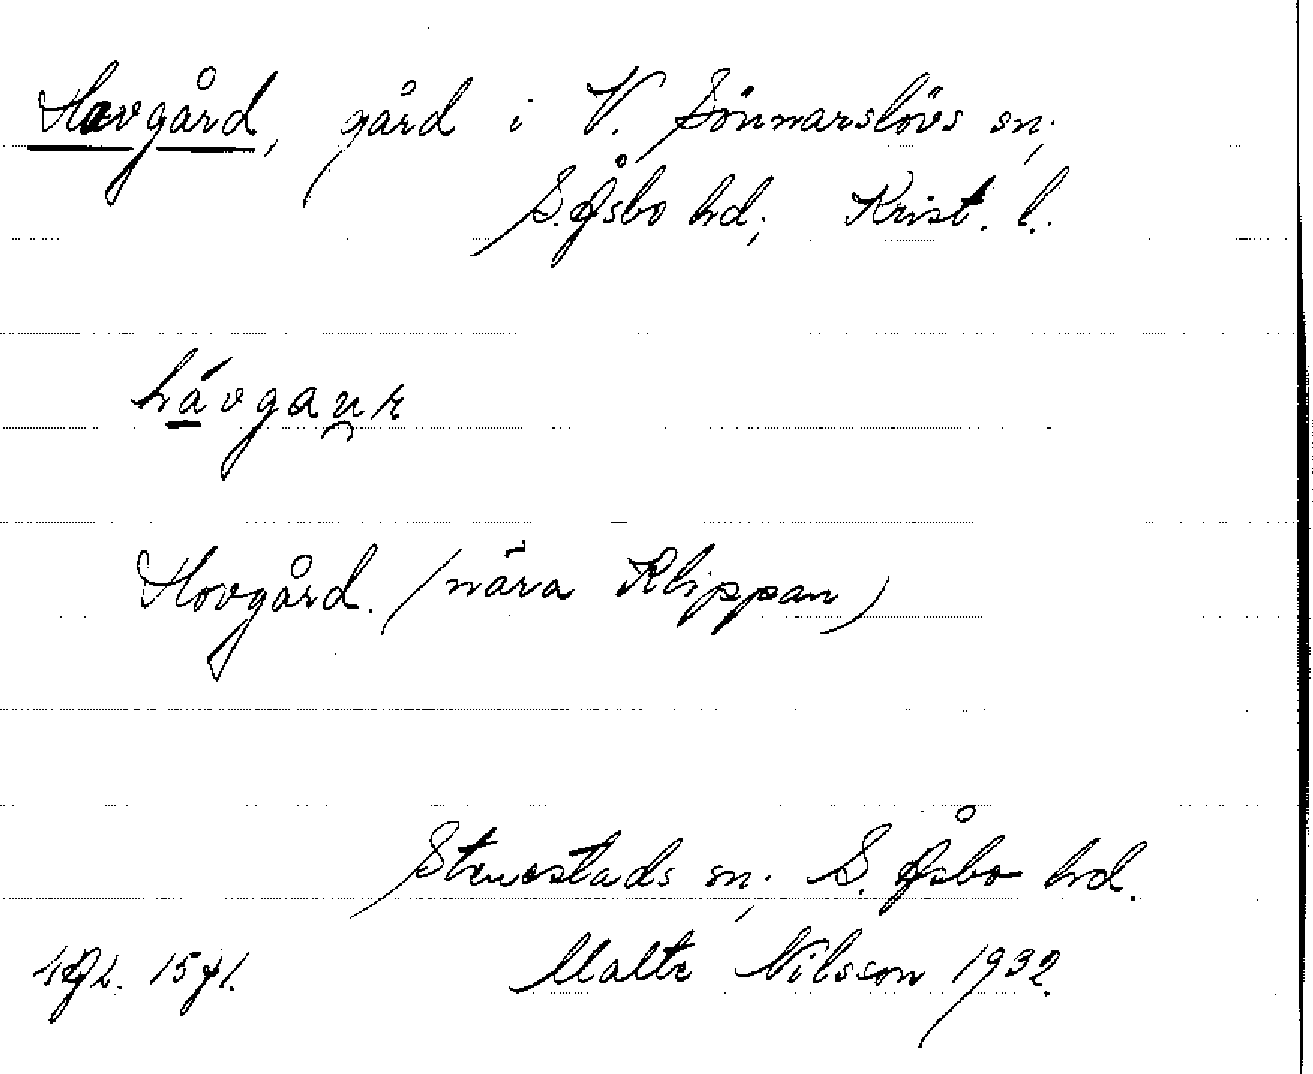 Havgård, gård i V. Sönnarslövs sn;
S. Åsbo hd; Krist. l.
hávgaur
Hovgård. (nära Klippan)
Stenestads sn; S. Åsbo hd.
Malte Nilsson 1932.